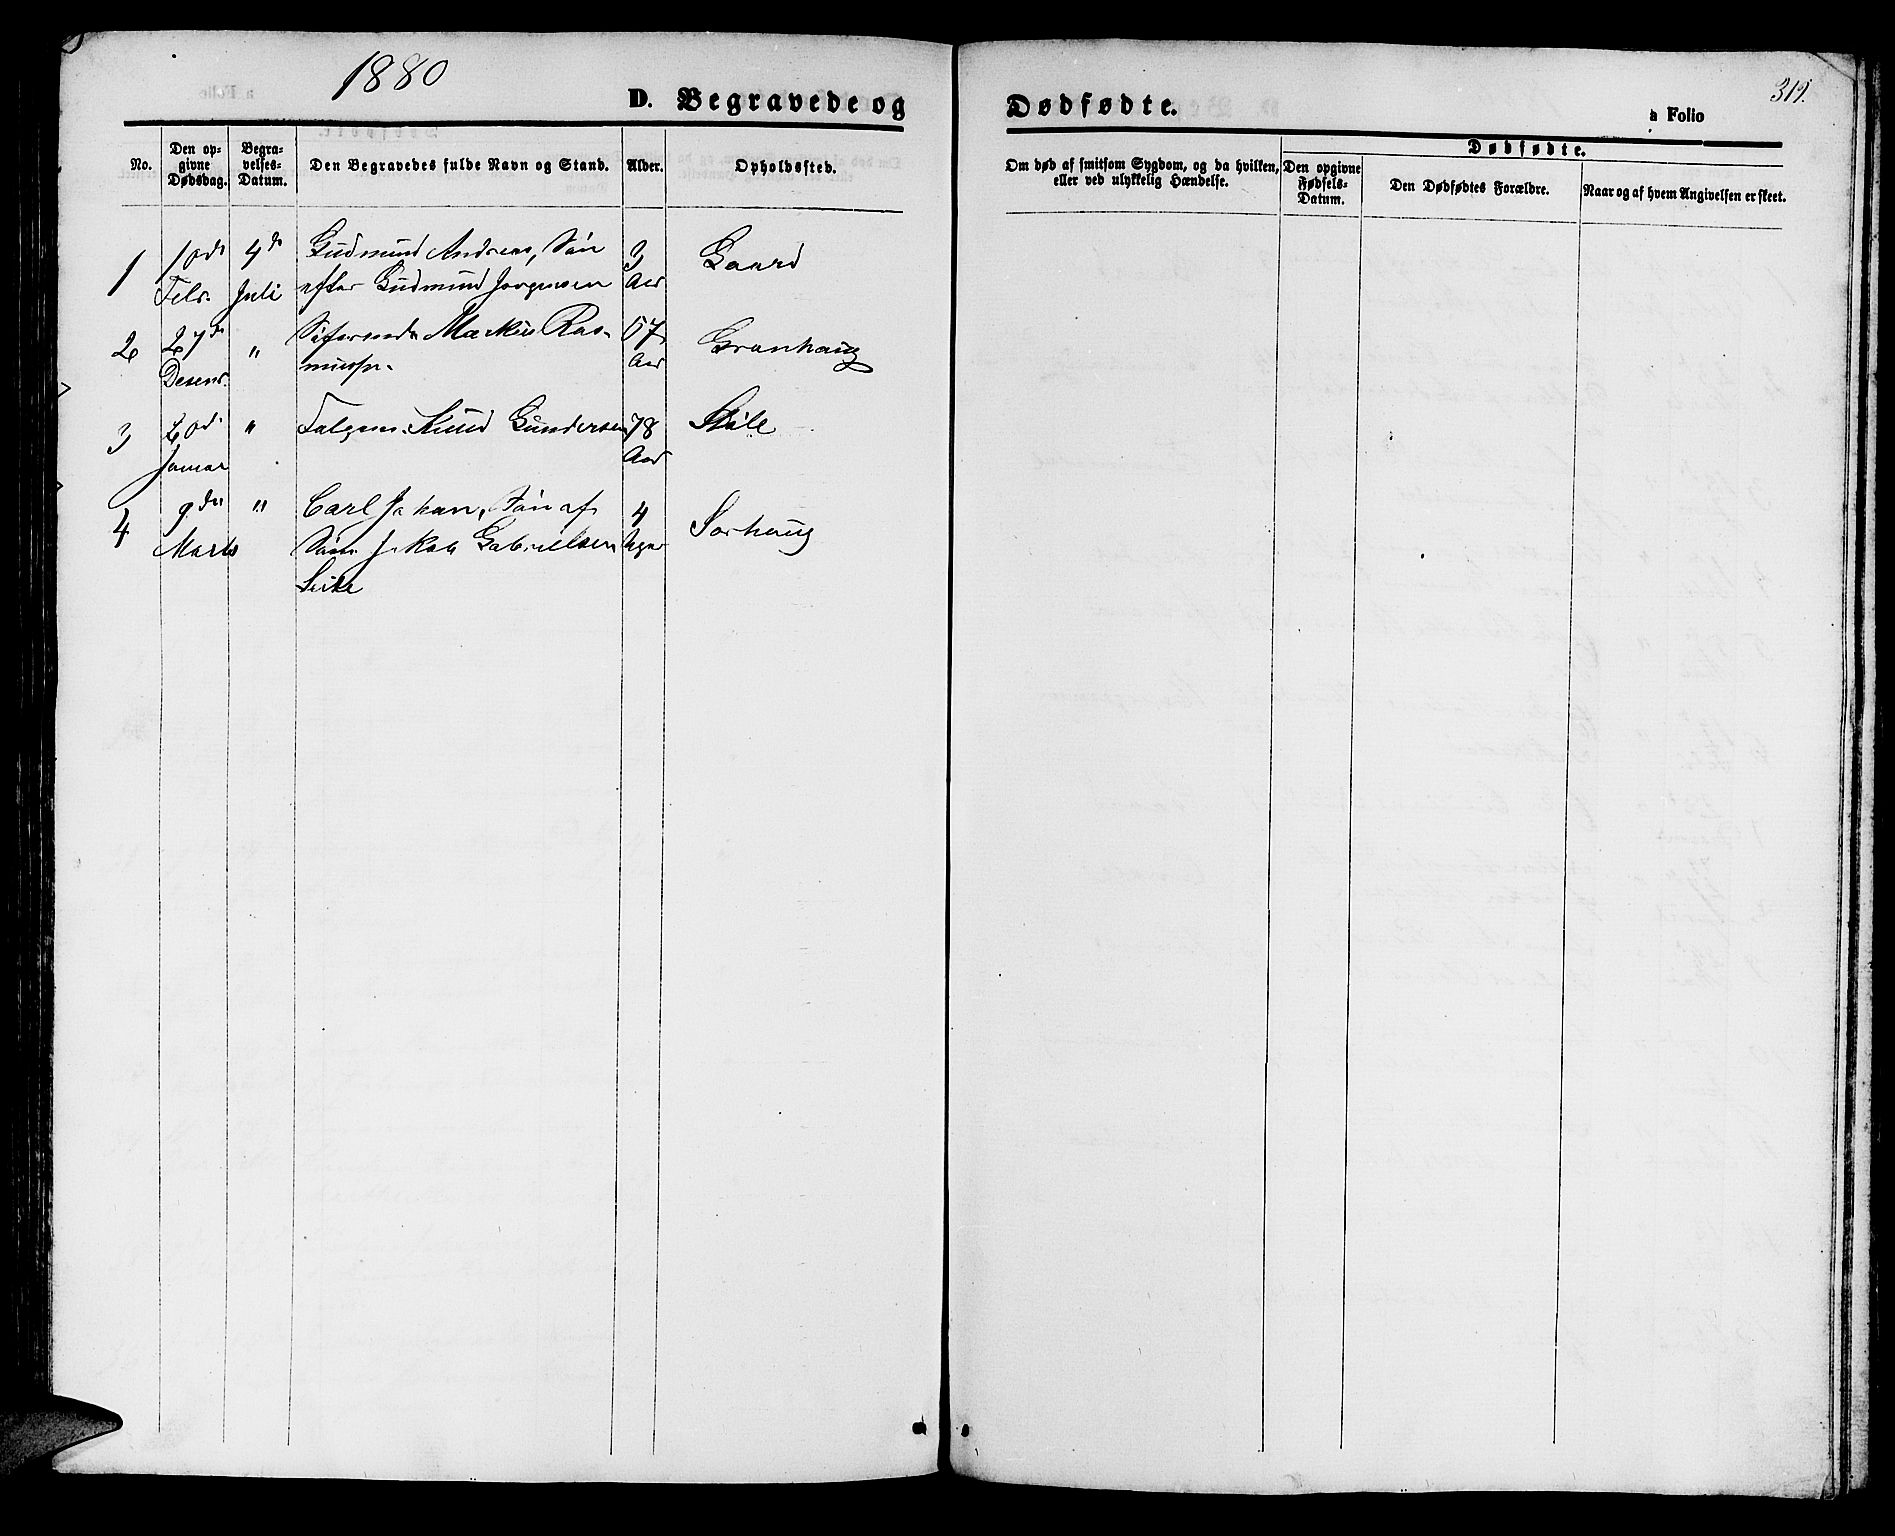 1880
D. Begravede og
Dødfødte.
319.
a Folio
No.
Den opgivne Dødsdag.
Begravelses-Datum.
Den Begravedes fulde Navn og Stand.
Alder.
Opholdssted.
Om død af smitsom Sygdom, og da hvilken,
eller ved ulykkelig Hændelse.
Dødfødte.
Den opgivne Fødsels-Datum.
Den Dødfødtes Forældre.
Naar og af hvem Angivelsen er skeet.
1 10de 4de Gudmund Andreas, Søn 3 Gaard
Febr. Juli efter Gudmund Jørgensen Aar
2 27de " Markus Ras- 57 Grønhaug
Desemb. mussen. Aar
3 20de " Knud Gundersen 78 Støle
Januar Aar
4 9de " Carl Johan, Søn af 4 Sørhaug
Marts Jakob Gabrielsen Uger